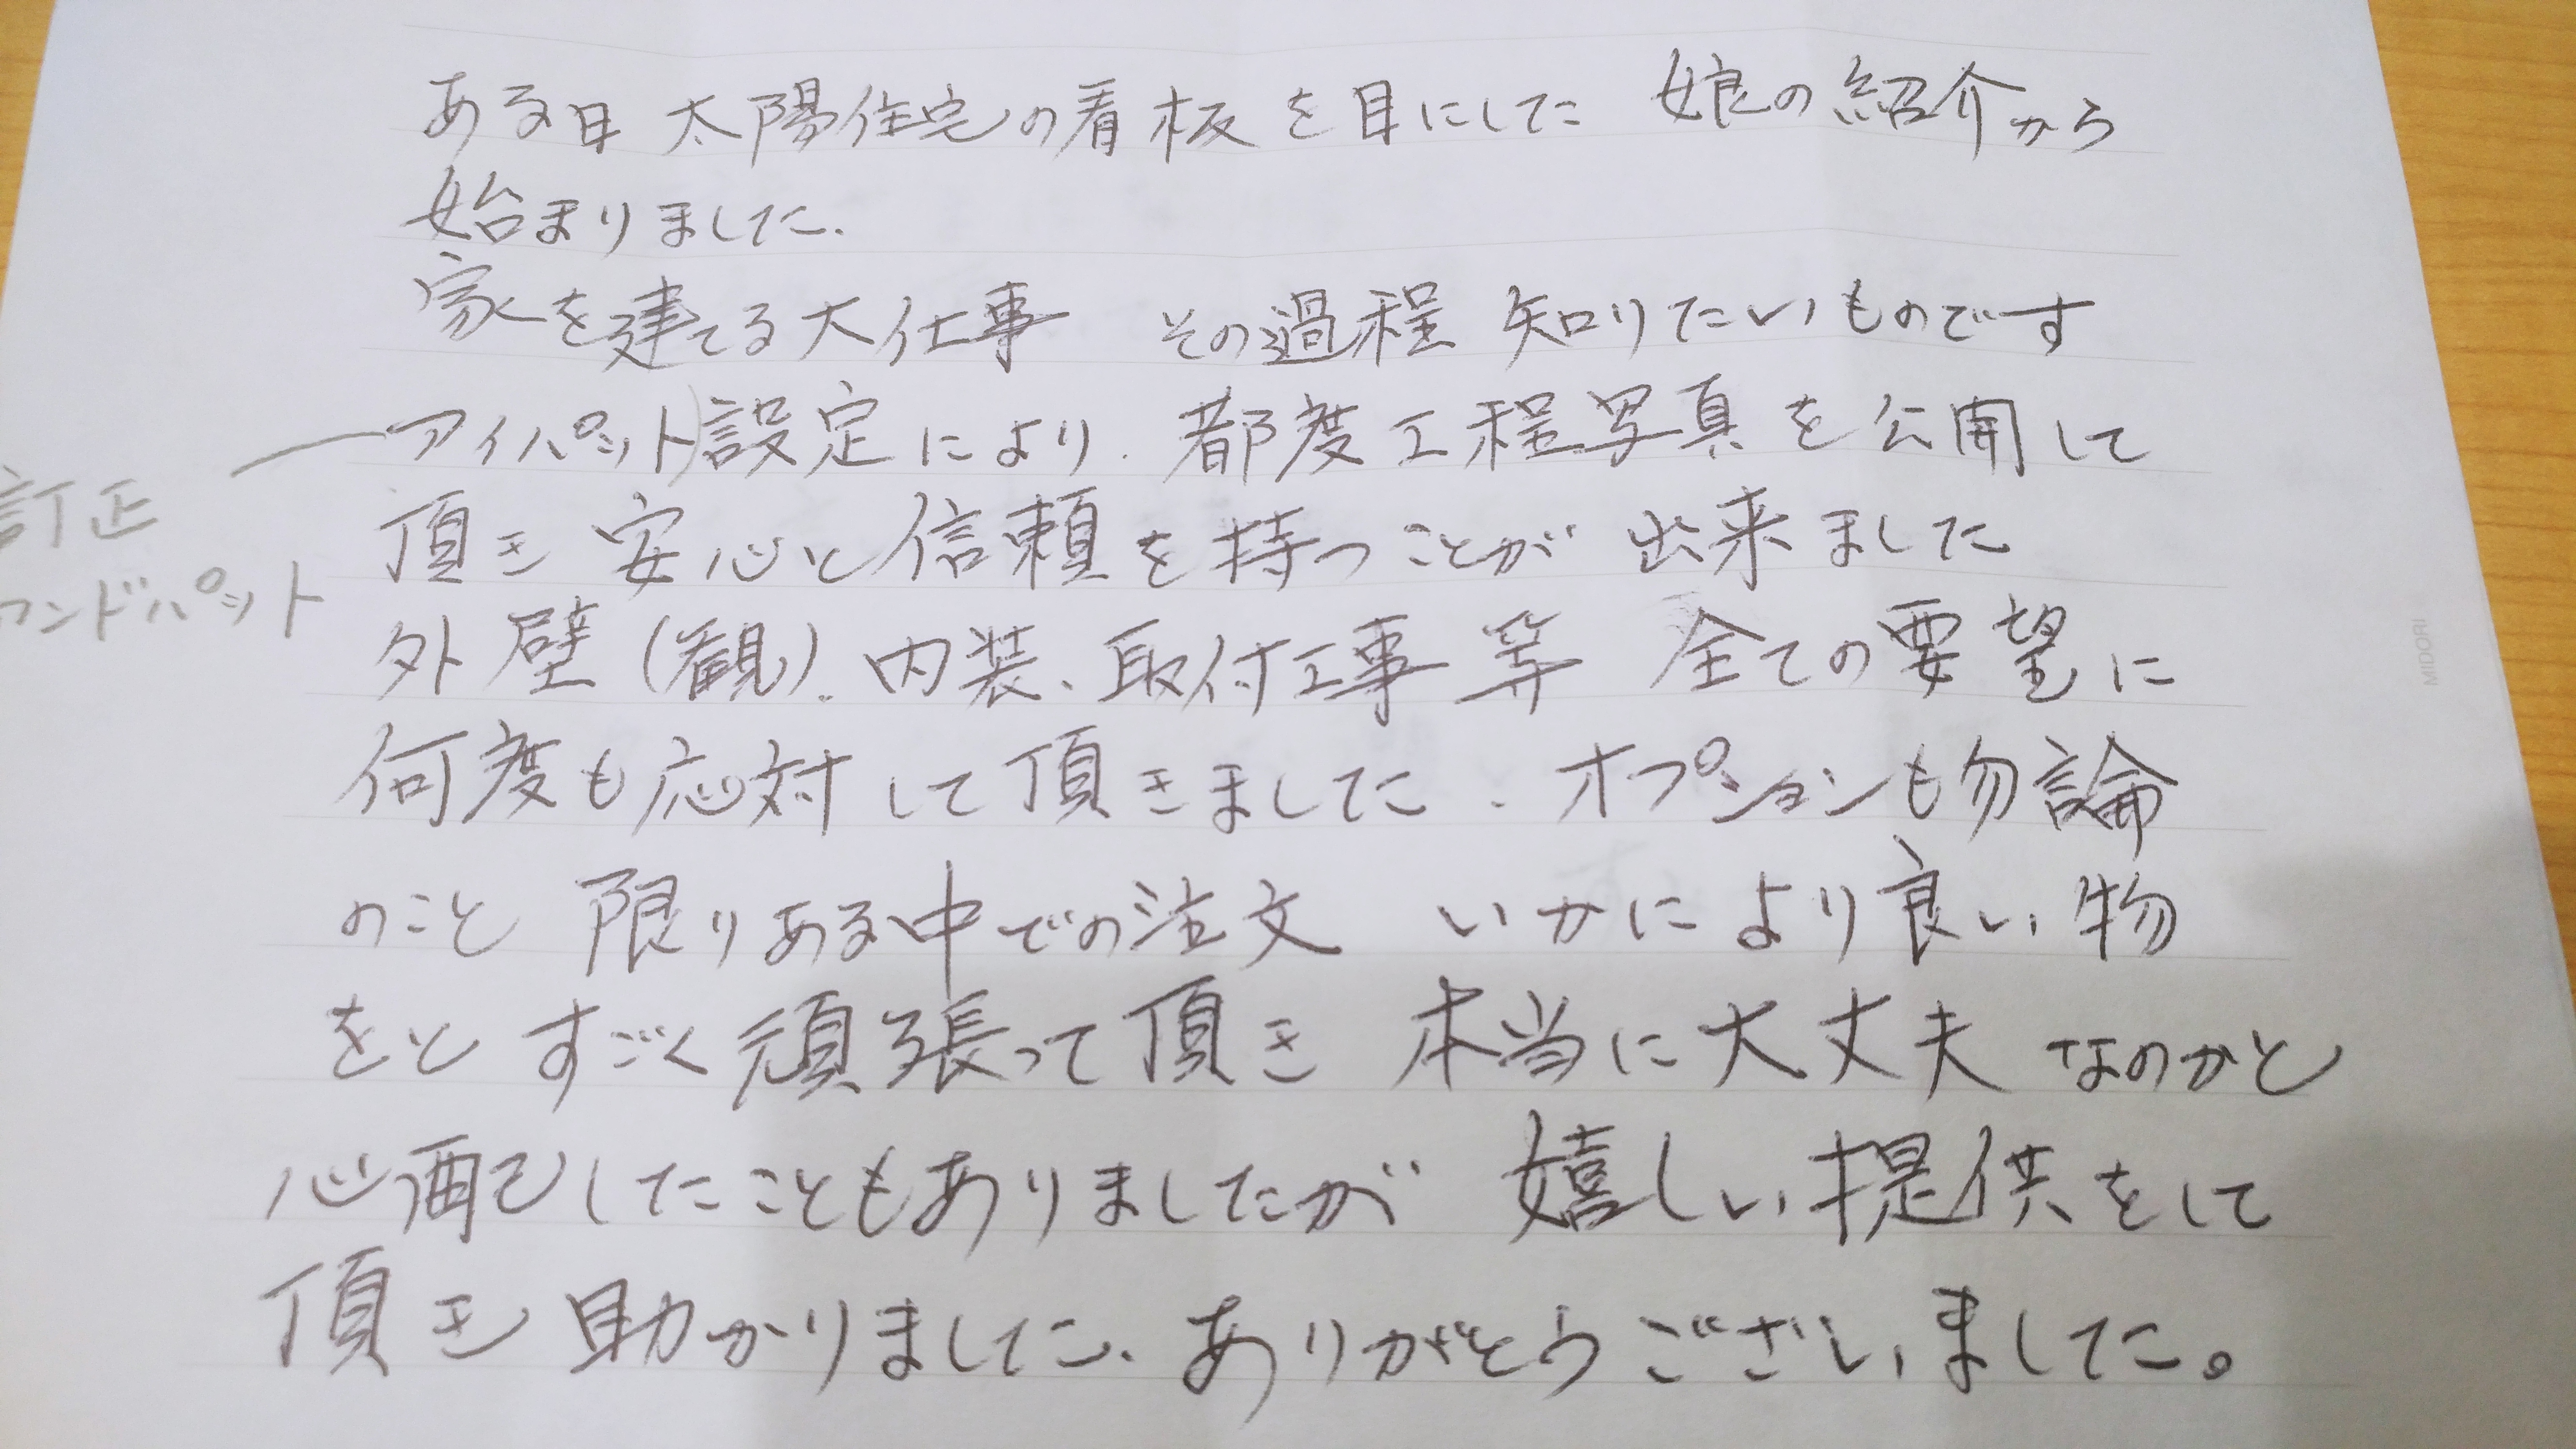 ある日 太陽住宅の看板を目にした 娘の紹介から
始まりました.
家を建てる大仕事 その過程 知りたいものです
アイパット)設定により. 都度工程写真を公開して
訂正
ンドパット
頂き 安心と信頼を持つことが 出来ました
外壁(観)、内装、取付工事等 全ての要望に
何度も応対して頂きました. オプションも勿論
のこと 限りある中での注文 いかにより良い物
をと すごく頑張って頂き 本当に大丈夫なのかと
心配したこともありましたが 嬉しい提供をして
頂き 助かりました、ありがとうございました。
MIDORI